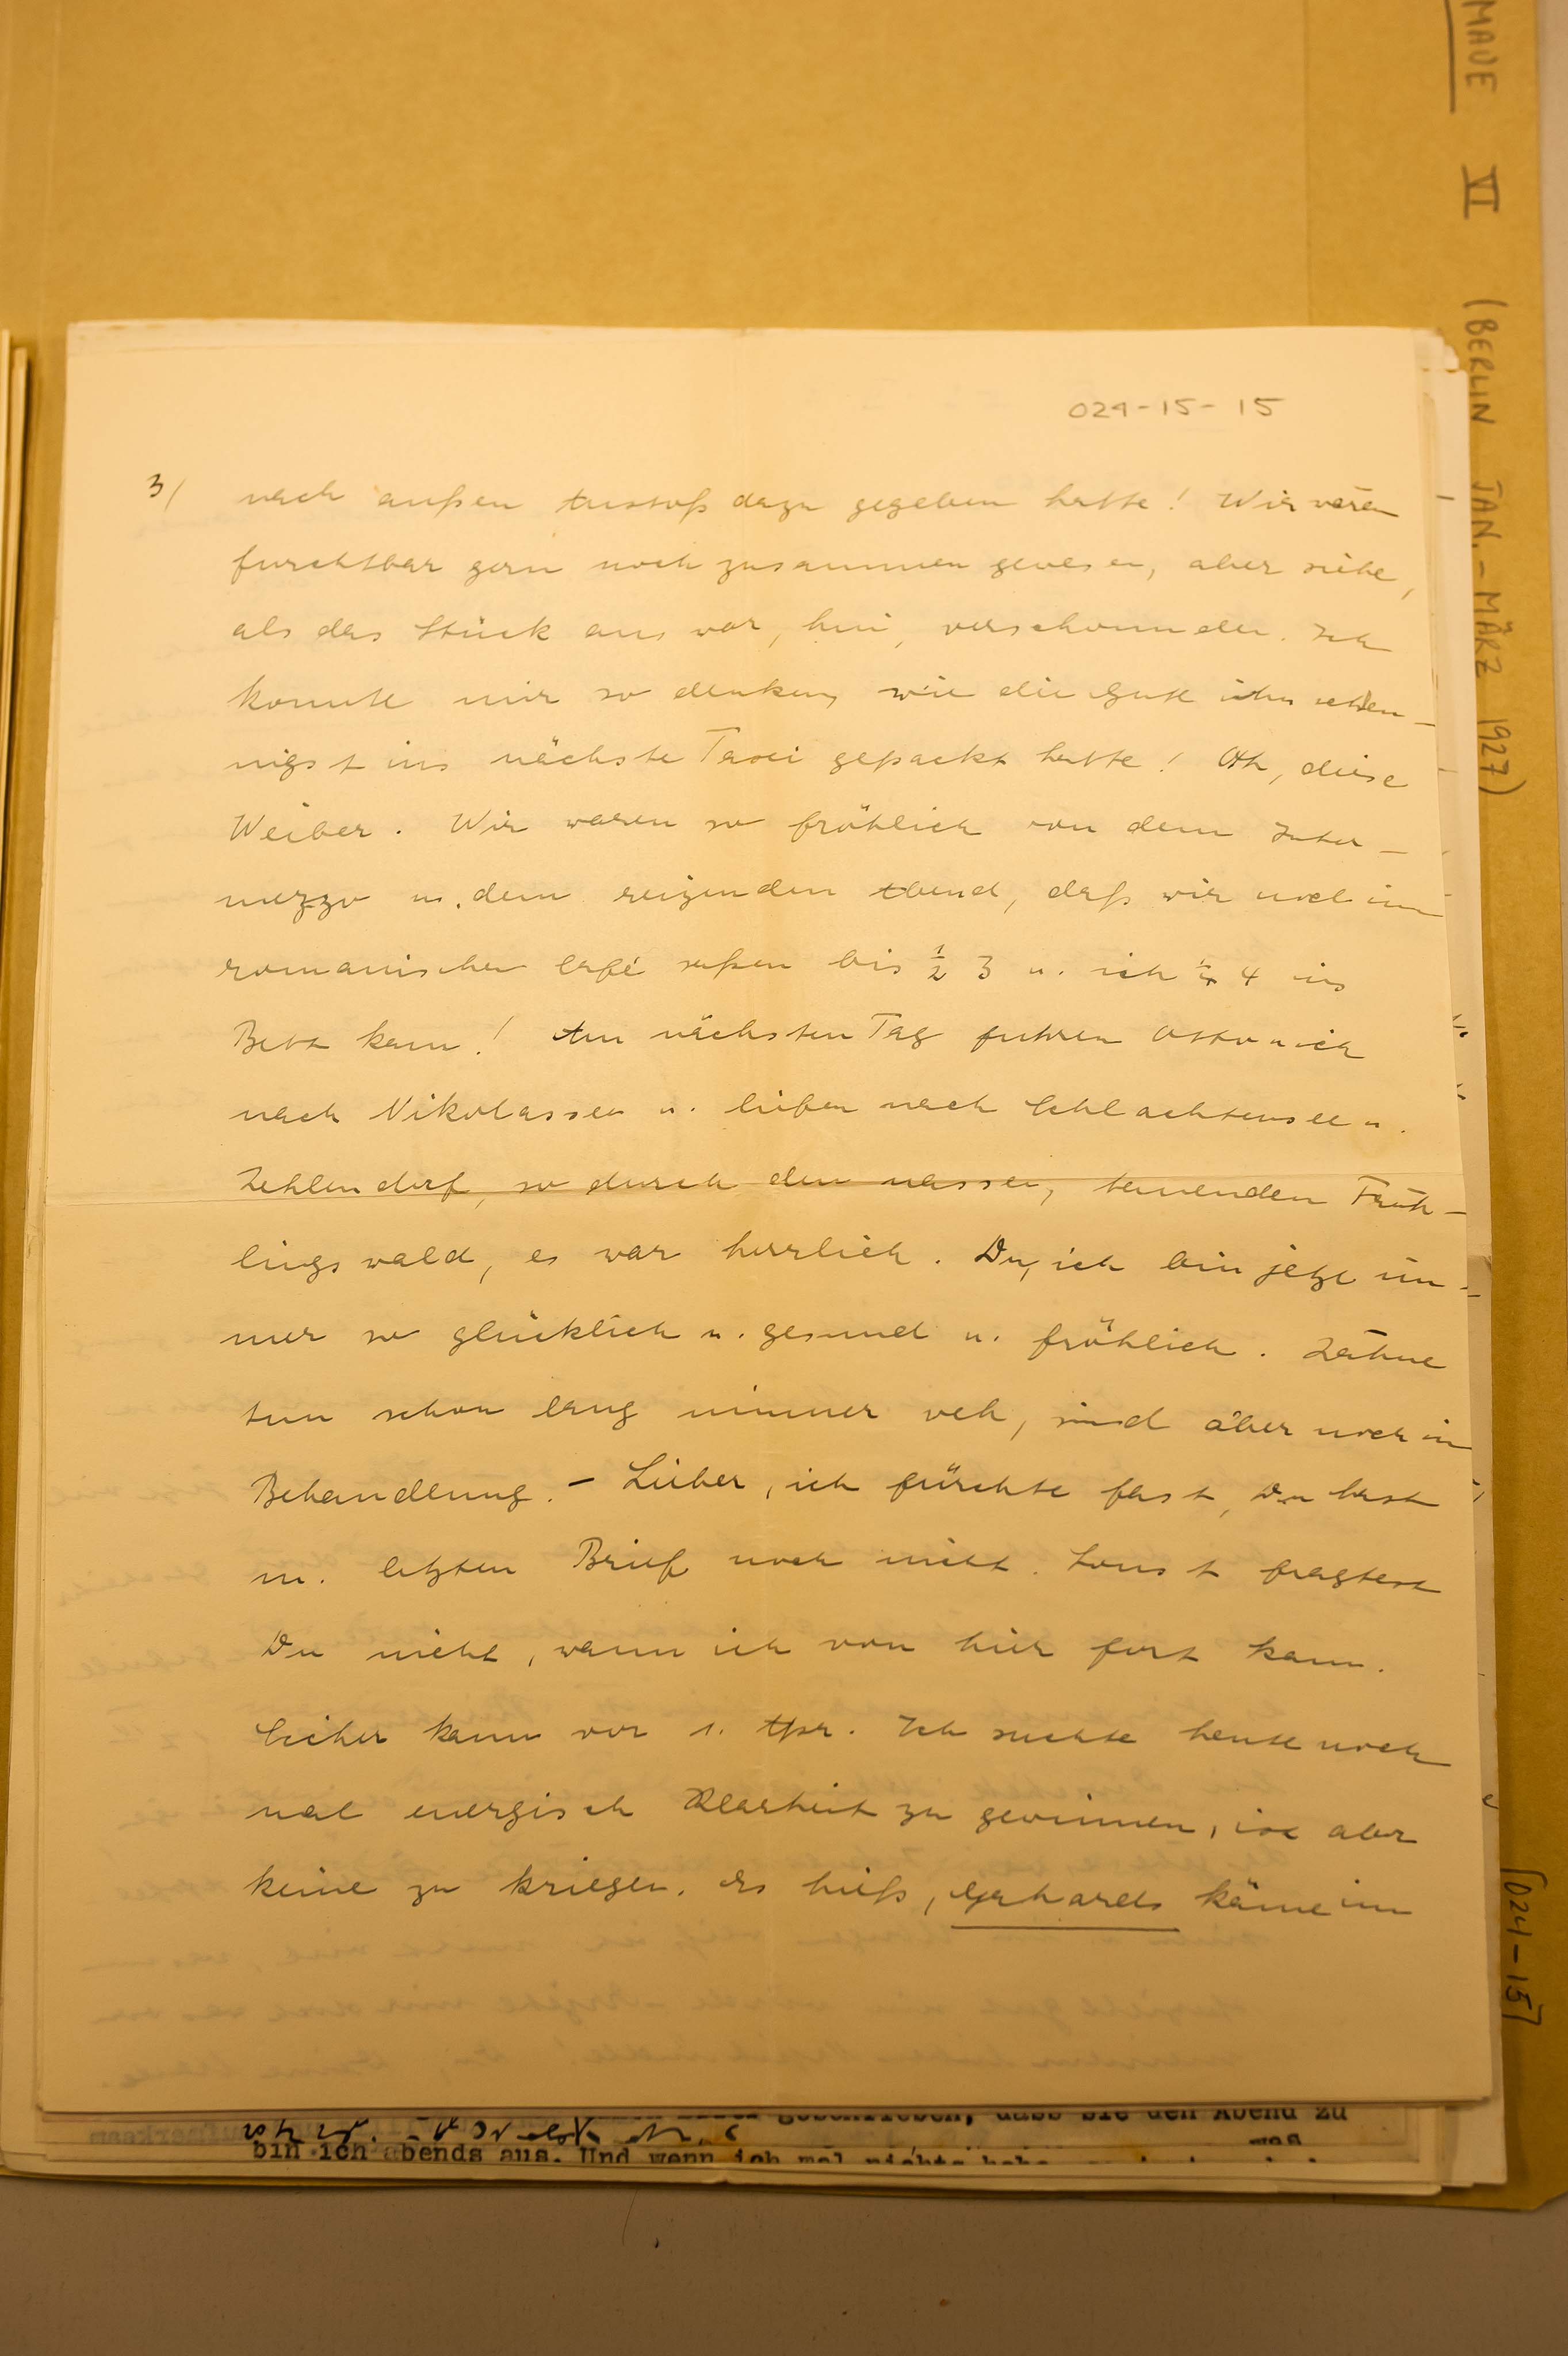 MAUE VI (BERLIN JAN.-MÄRZ 1927)
[024-15]
024-15-15
3/ nach außen Anstoß dazu gegeben hatte! Wir wären
furchtbar gern noch zusammen gewesen, aber siehe,
als das Stück aus war, hui, verschwunden. Ich
konnte mir so denken, wie die Gute ihn schleu-
nigst ins nächste Taxi gepackt hatte! Oh, diese
Weiber. Wir waren so fröhlich von dem Inter-
mezzo u. dem reizenden Abend, daß wir noch im
romanischen Café saßen bis ½ 3 u. ich ¼ 4 ins
Bett kam! Am nächsten Tag fuhren Otto u ich
nach Nikolassee u. liefen nach Schlachtensee u.
Zehlendorf, so durch den nassen, tauenden Früh-
lingswald, es war herrlich. Du, ich bin jetzt im-
mer so glücklich u. gesund u. fröhlich. Zähne
tun schon lang nimmer weh, sind aber noch in
Behandlung. - Lieber, ich fürchte fast, Du hast
m. letzten Brief noch nicht. Sonst fragtest
Du nicht, wann ich von hier fort kann.
Sicher kaum vor 1. Apr. Ich suchte heute noch
mal energisch Klarheit zu gewinnen, ist aber
keine zu kriegen. Es hieß, Gerhards käme im
geschrieben, dass sie den Abend zu
bin ich abends aus. Und wenn ich mal nichts habe